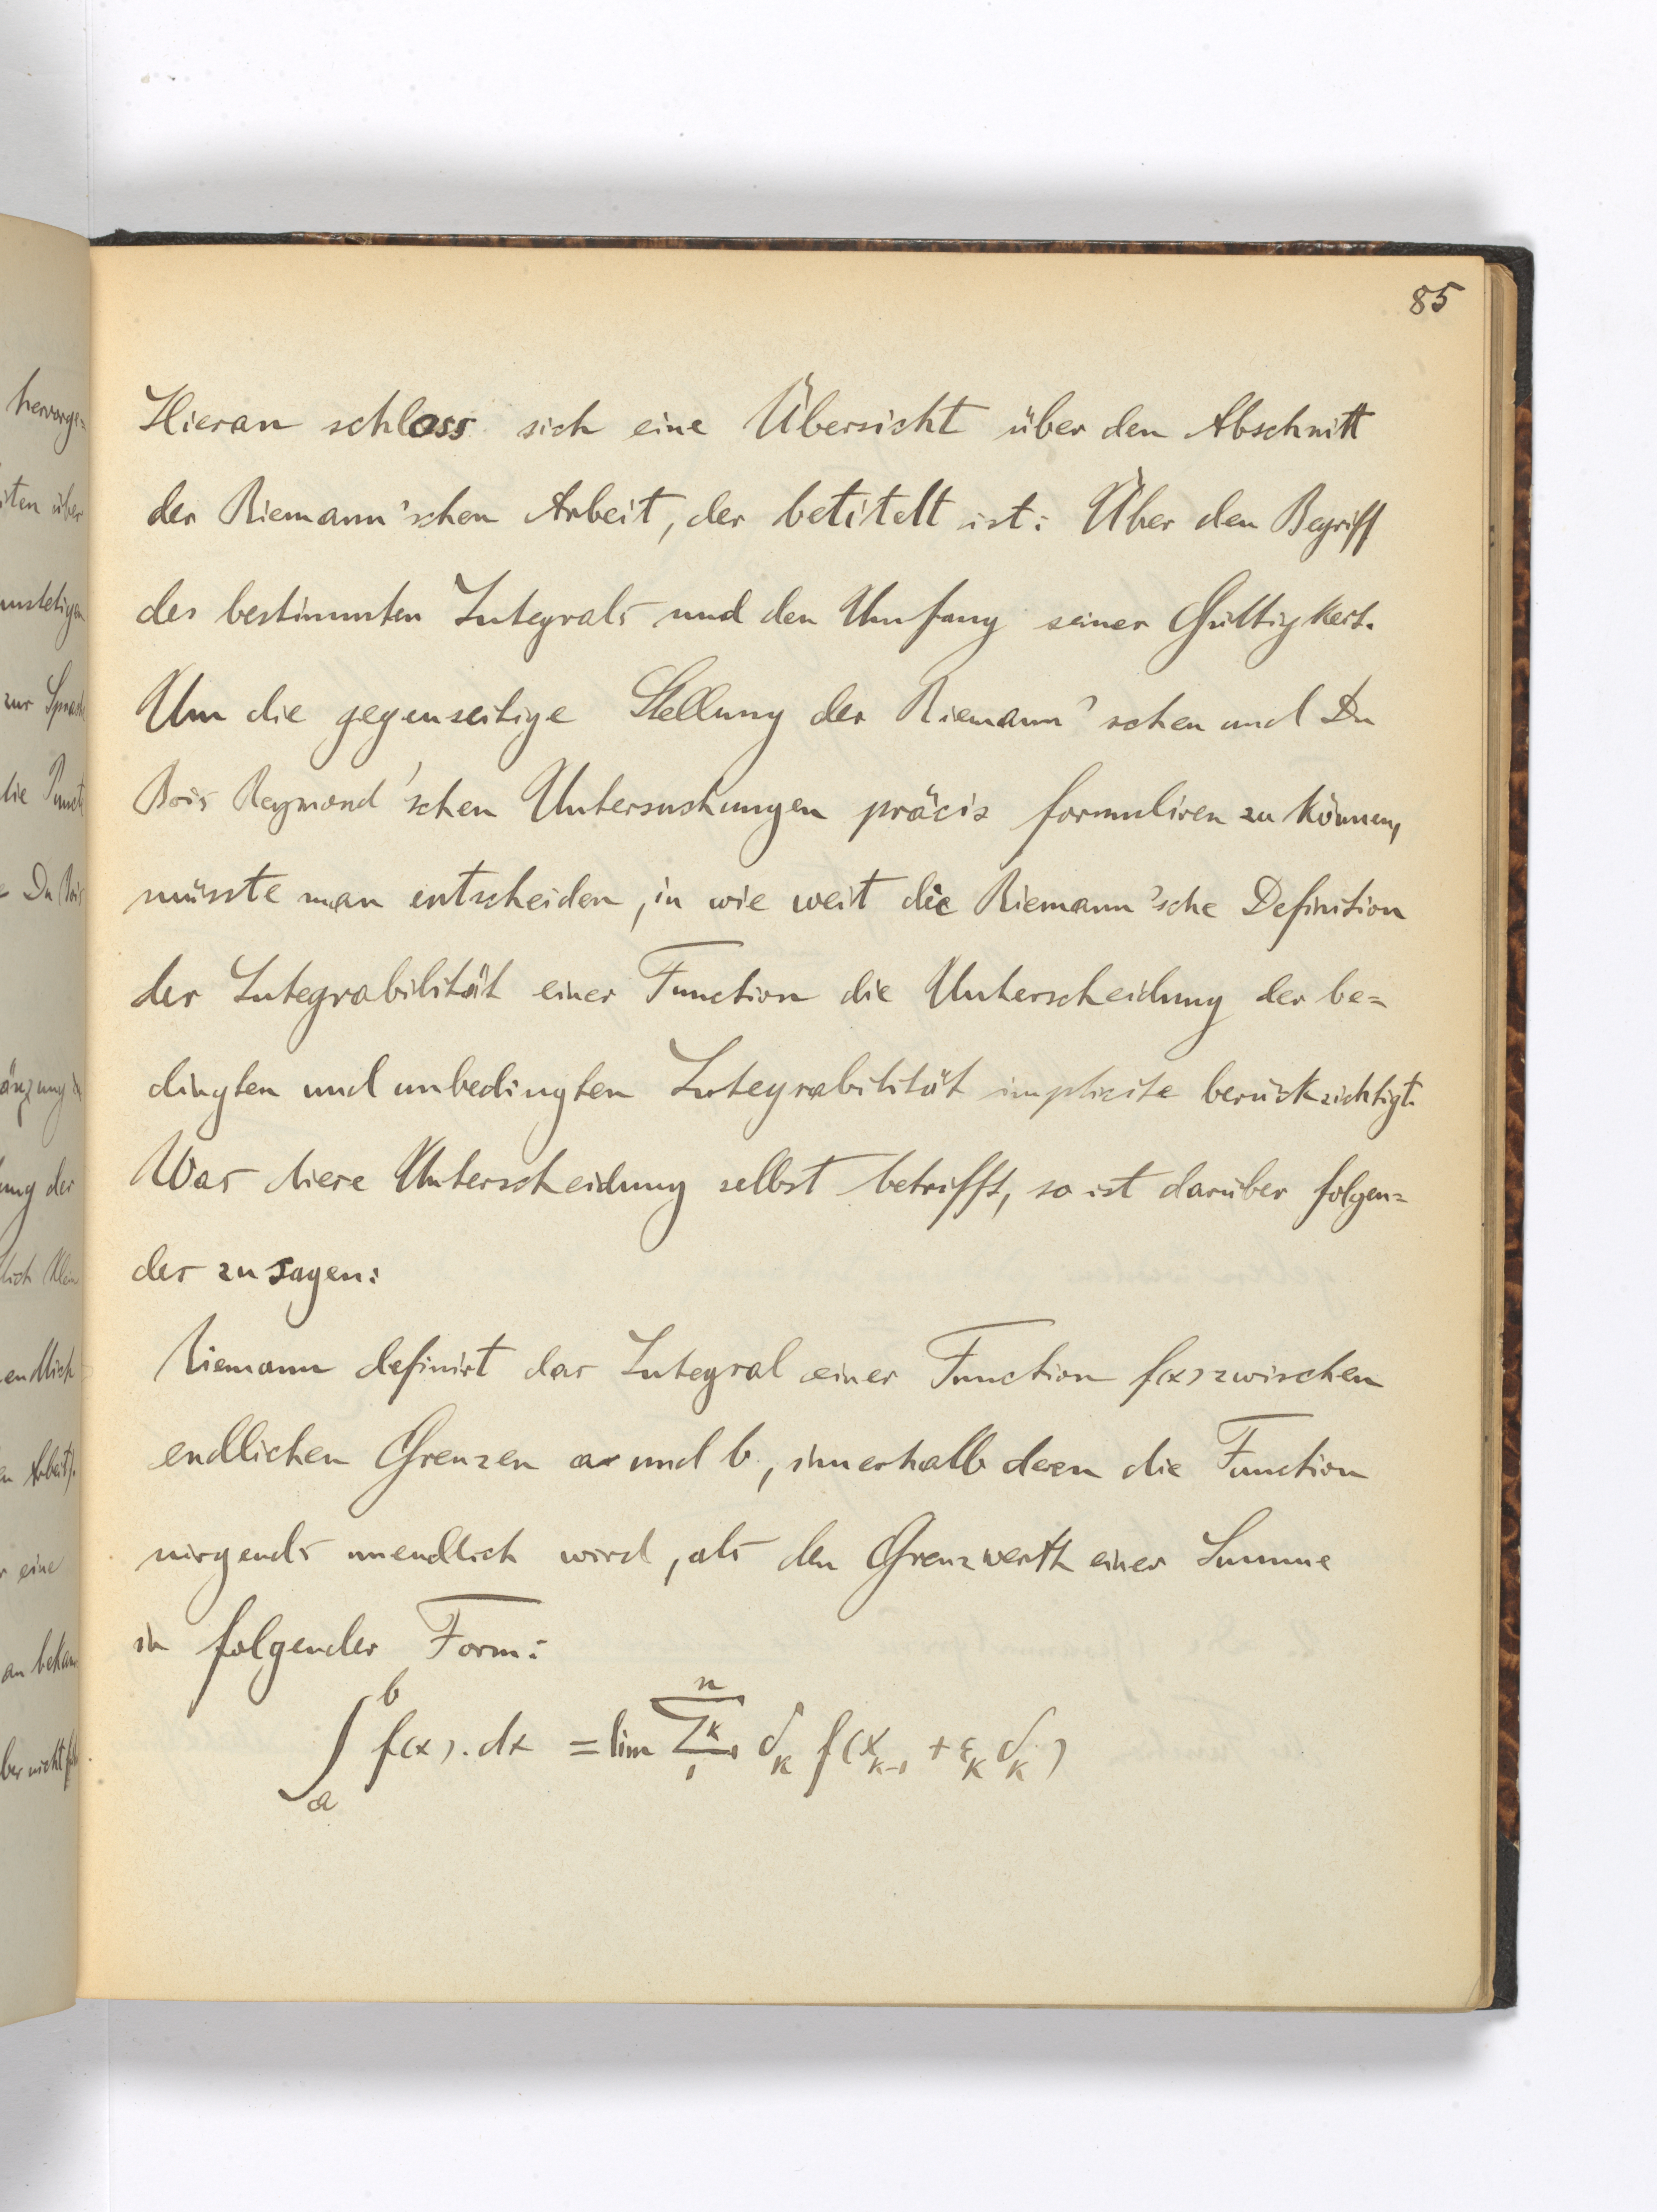 85
Hieran schloss sich eine Übersicht über den Abschnitt
der Riemann'schen Arbeit, der betitelt ist: Über den Begriff
des bestimmten Integrals und den Umfang seiner Gültigkeit.
Um die gegenseitige Stellung der Riemann'schen und Du
Bois Reymond'schen Untersuchungen präcis formuliren zu können,
müsste man entscheiden, in wie weit die Riemann'sche Definition
der Integrabilität einer Function die Unterscheidung der be=
dingten und unbedingten Integrabilität implicite berücksichtigt.
Was diese Unterscheidung selbst betrifft, so ist darüber folgen=
des zu sagen:
Riemann definirt das Integral einer Function f(x) zwischen
endlichen Grenzen a und b, innerhalb deren die Function
nirgends unendlich wird, als den Grenzwerth einer Summe
in folgender Form:
∫_a^b f(x).dx = lim Σ_1^n k δ_k f(x_{k-1} + ε_k δ_k)
hervorge=
iten über
unstetigen
zur Sprache
die Punkte
Du Bois
änzung
ung der
lich Klein
endlich
n Arbeit).
r eine
an bekan
ber nicht